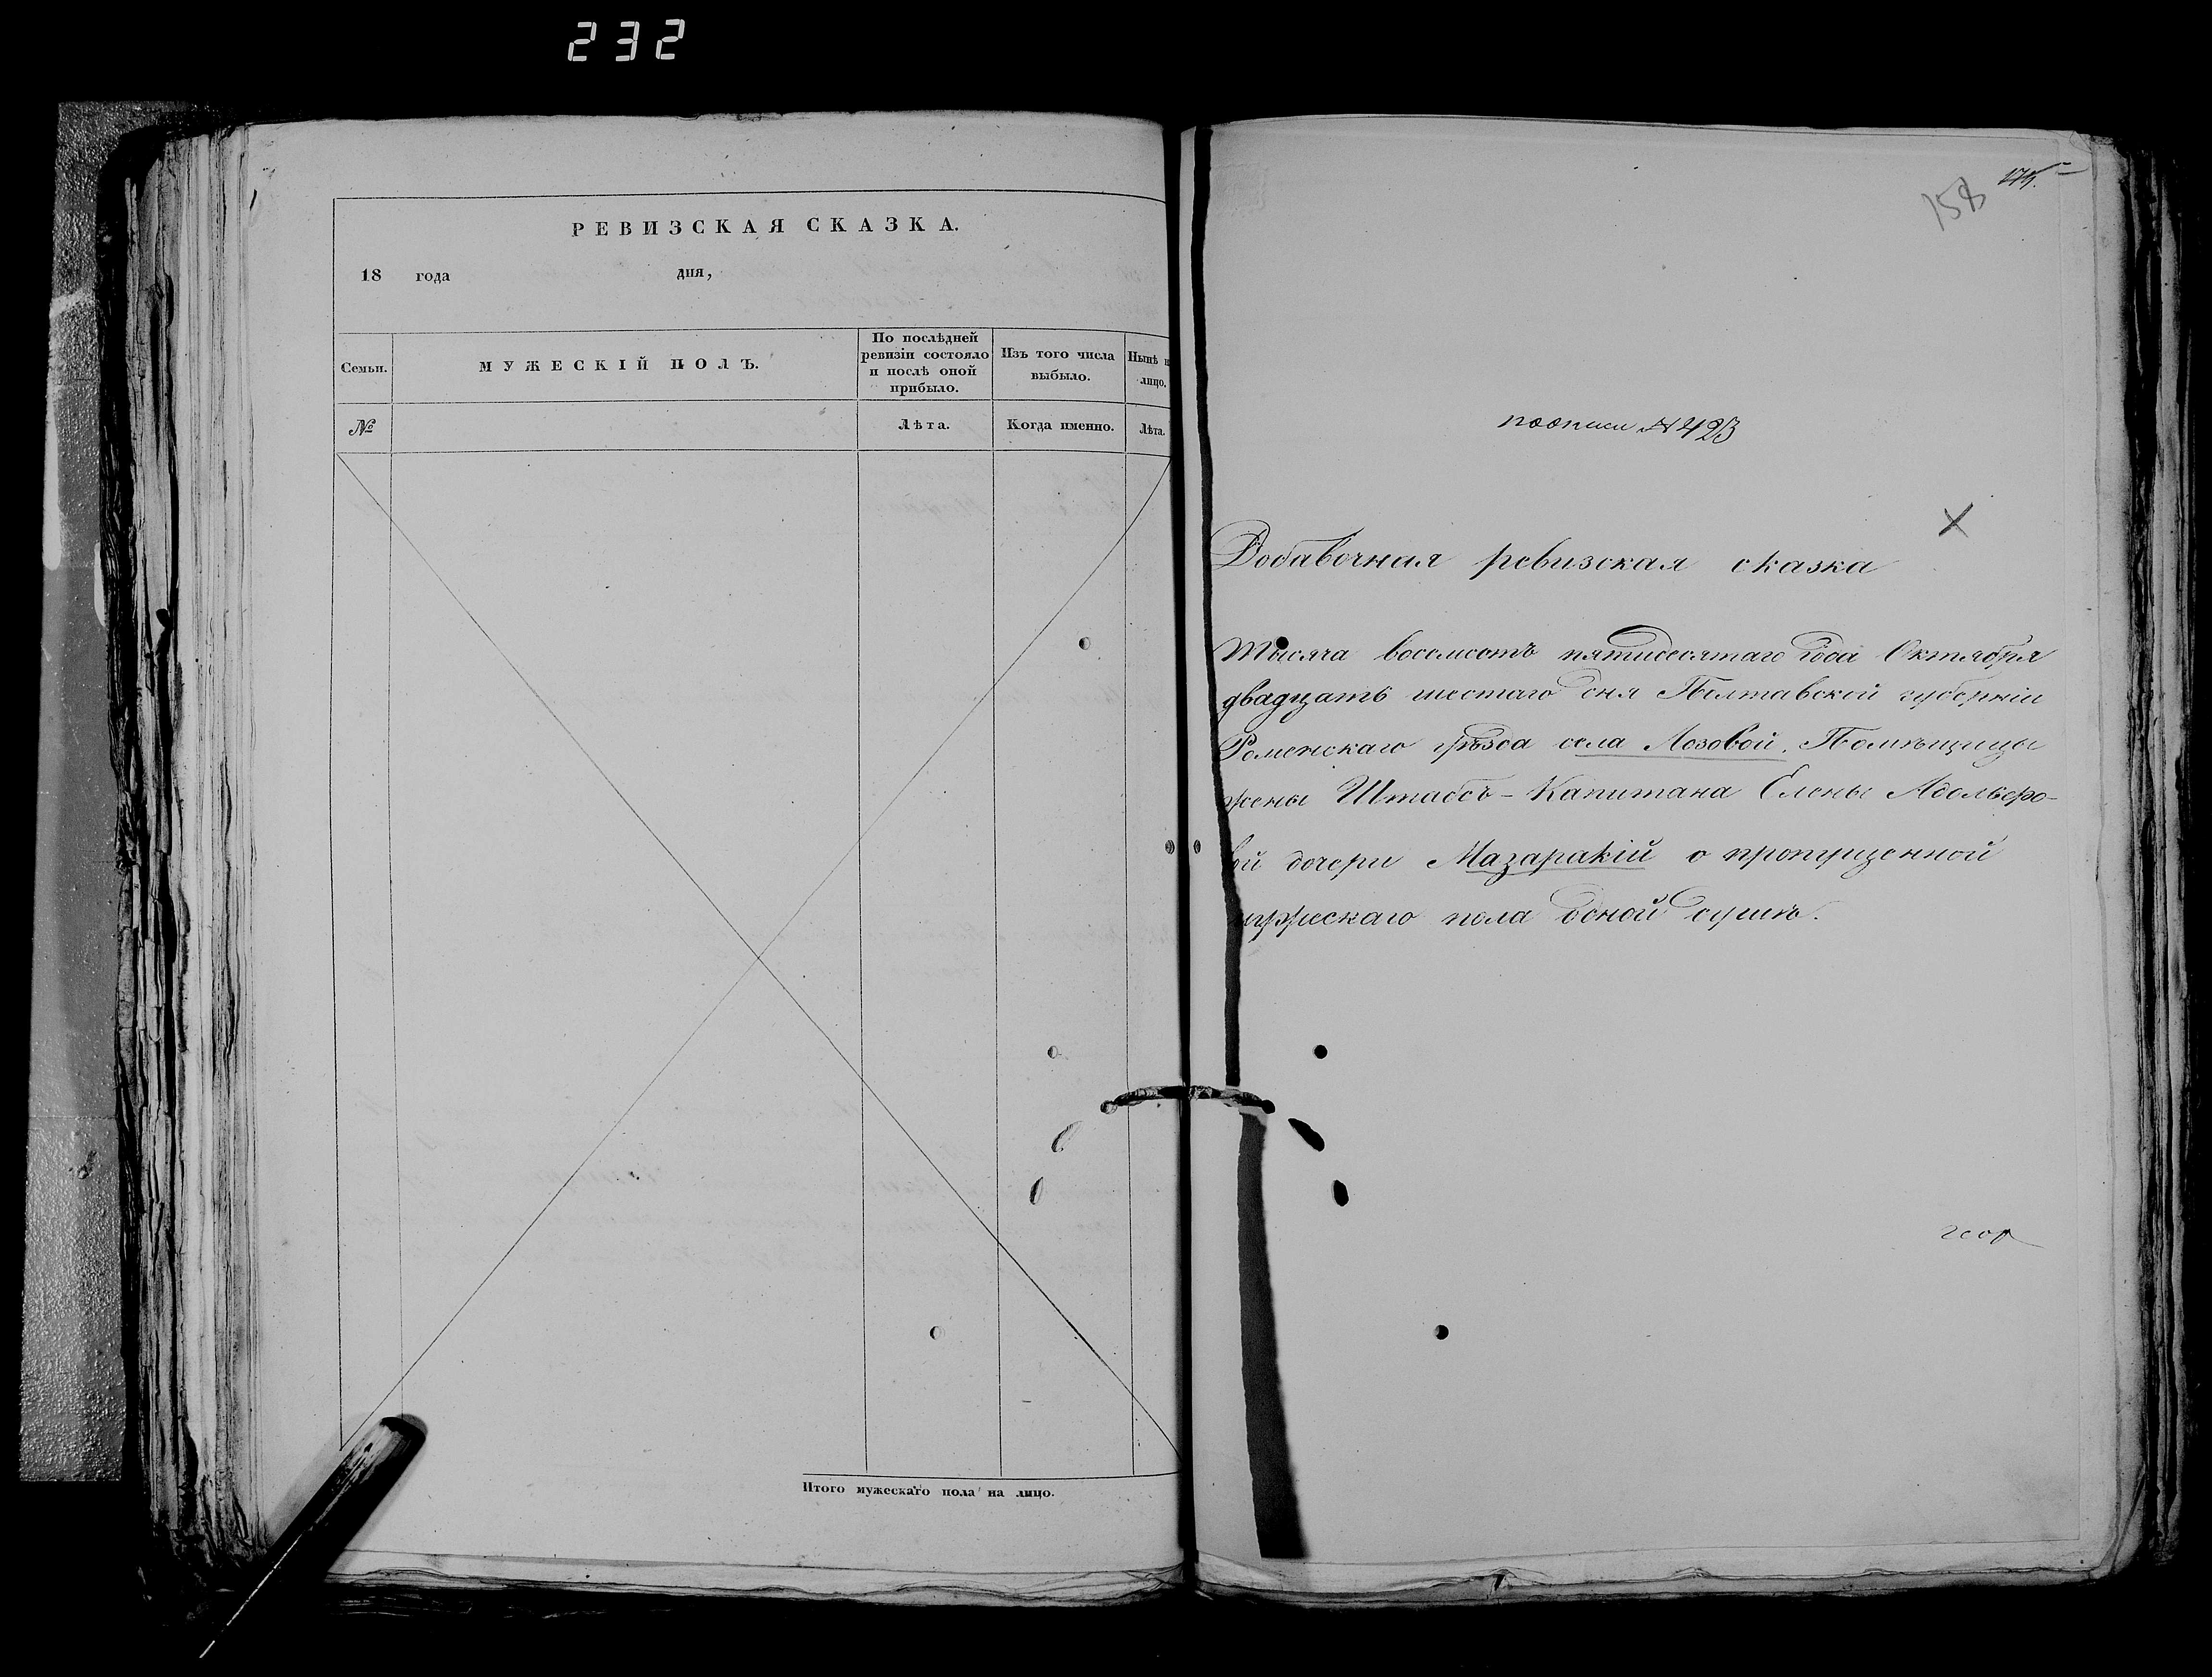 232
РЕВИЗСКАЯ СКАЗКА.
18 года дня,
Семьи.
МУЖЕСКІЙ ПОЛЪ.
По послѣдней ревизіи состояло и послѣ оной прибыло.
Изъ того числа выбыло.
Нынѣ н лицо.
№
Лѣта.
Когда именно.
Лѣта.
Итого мужескаго пола на лицо.
158
по описи №423
Добавочная ревизская сказка
Тысяча восемсотъ пятидесятаго года Октября
двадцать шестаго дня Полтавской губерніи
Роменскаго уѣзда села Лозовой, Помѣщицы
жены Штабсъ-Капитана Елены
вой дочери Мазаракій о пропущенной
мужескаго пола одной душѣ.